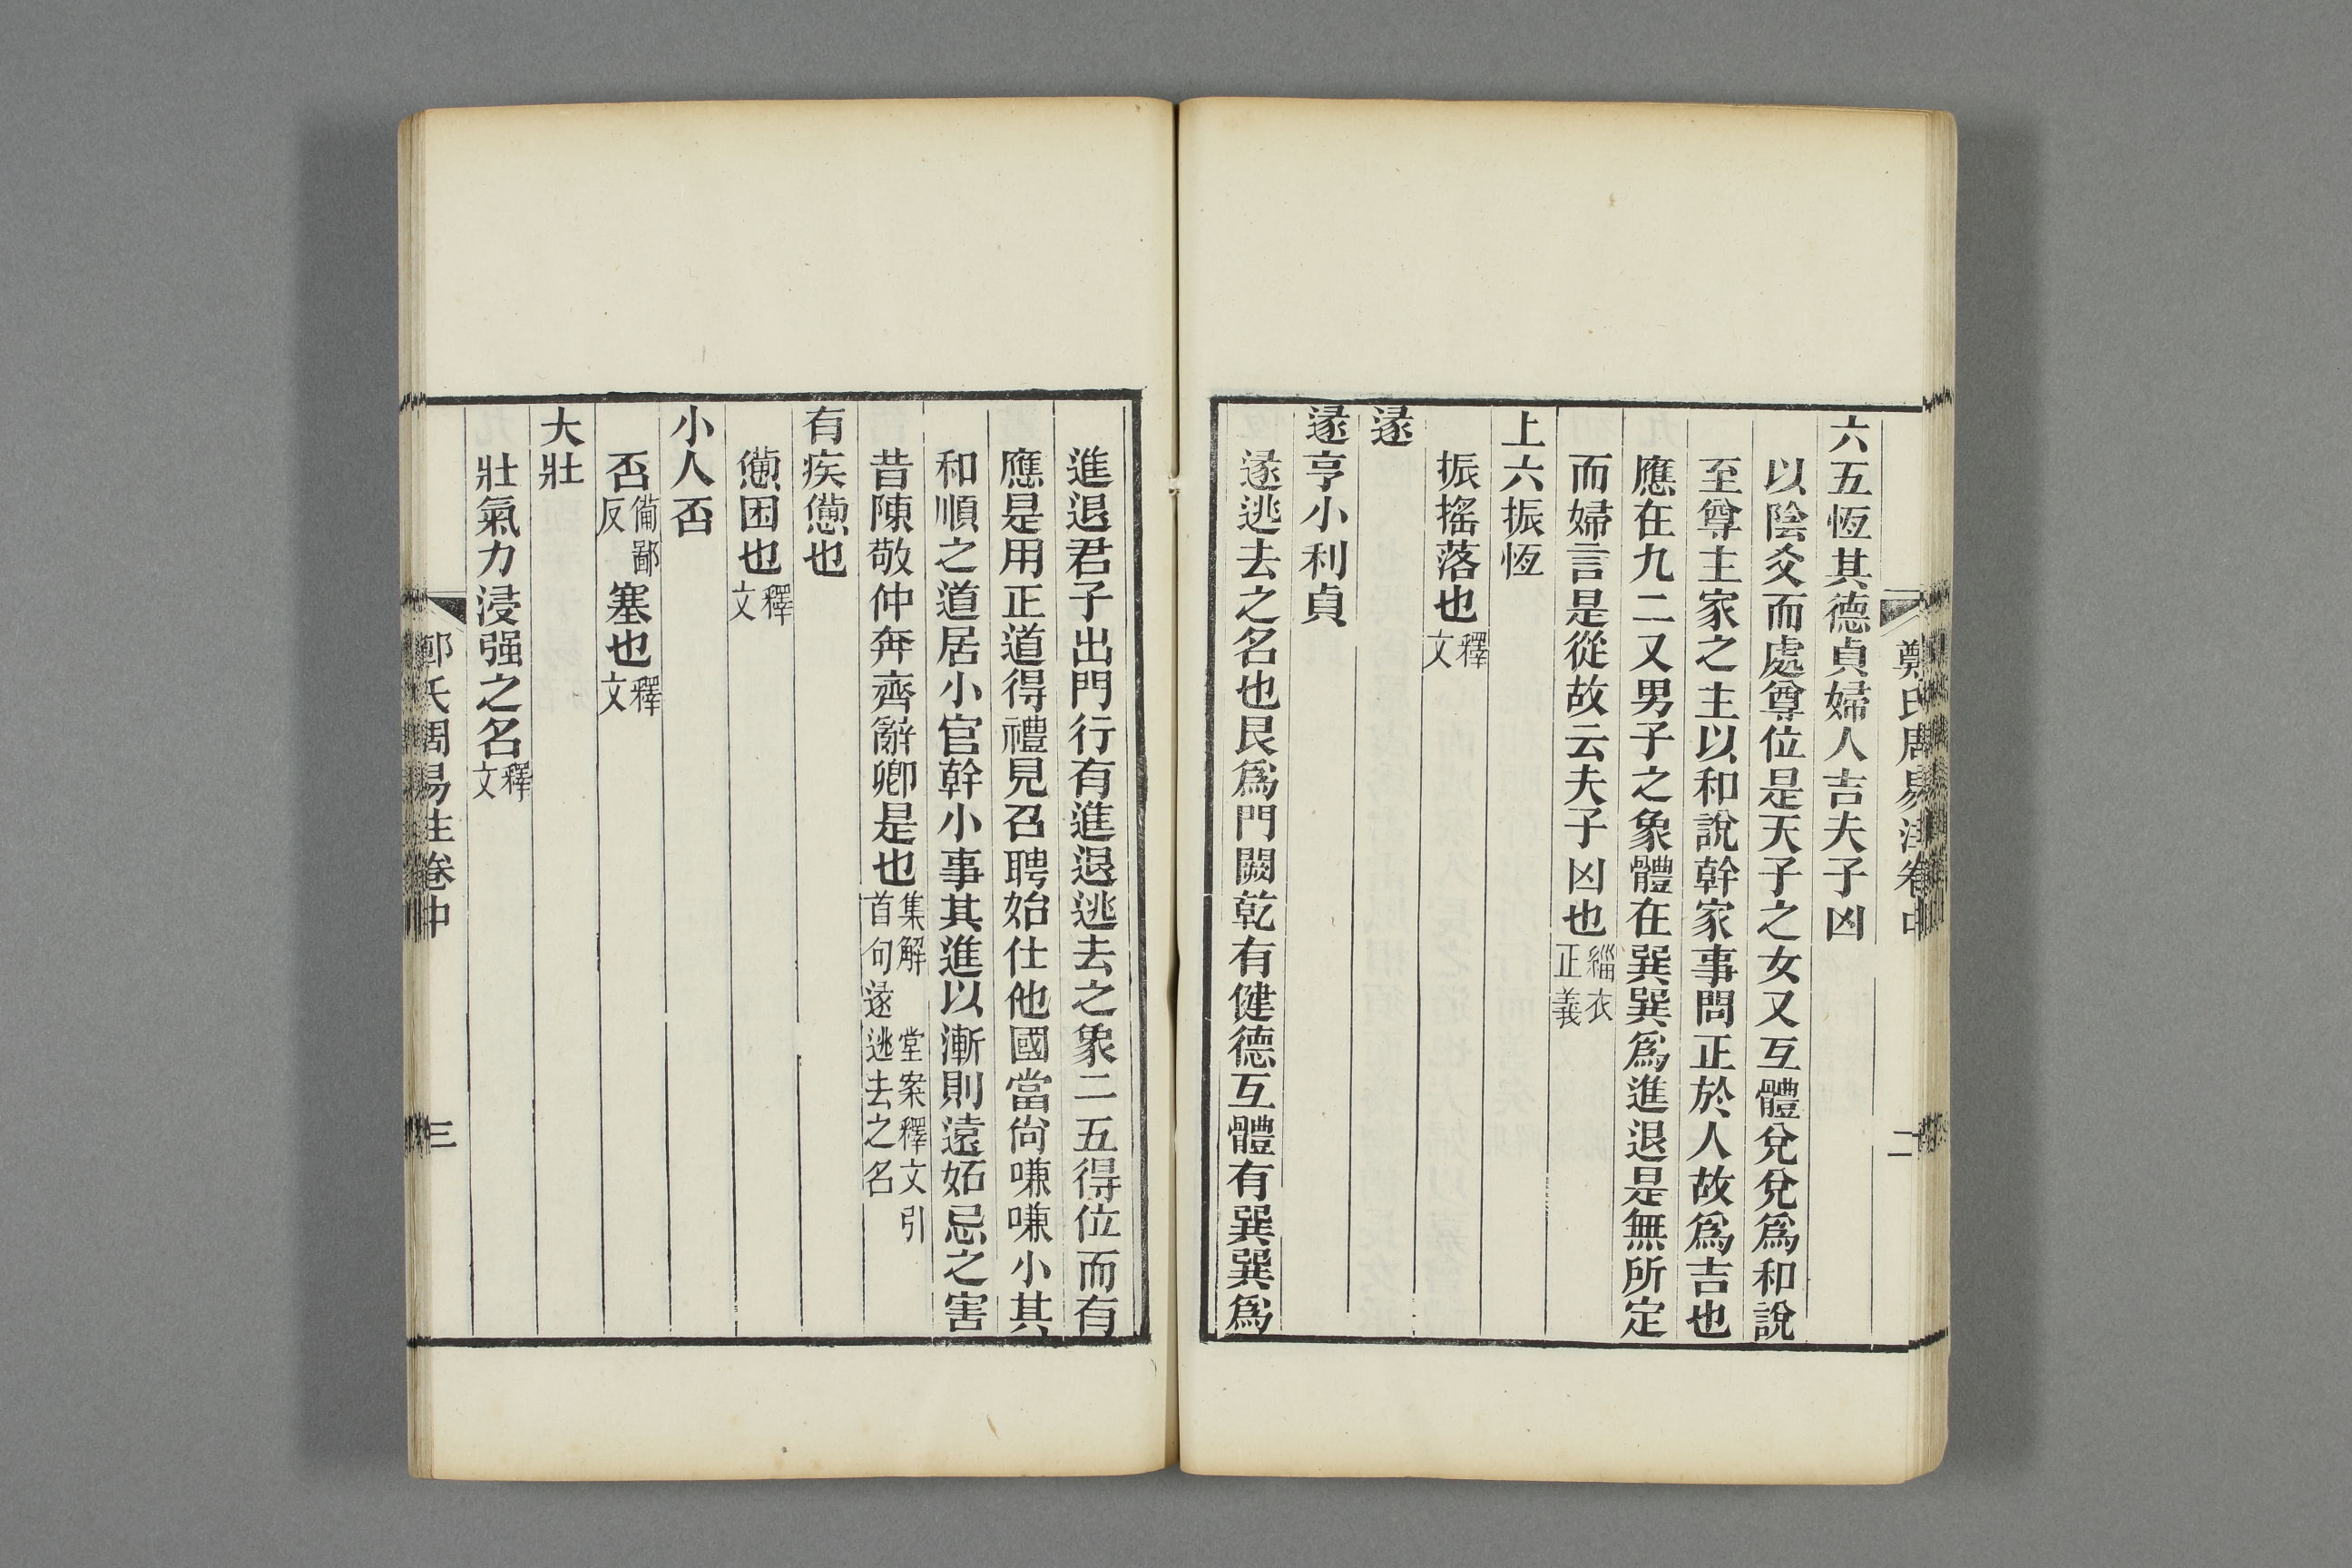 鄭氏周易注卷中
二
六五恆其德貞婦人吉夫子凶
以陰爻而處尊位是天子之女又互體兌兌爲和說
至尊主家之主以和說幹家事問正於人故爲吉也
應在九二又男子之象體在巽巽爲進退是無所定
而婦言是從故云夫子凶也緇衣正義
上六振恆
振搖落也釋文
遂
遂亨小利貞
遂逃去之名也艮爲門闕乾有健德互體有巽巽爲
進退君子出門行有進退逃去之象二五得位而有
應是用正道得禮見召聘始仕他國當尙嗛嗛小其
和順之道居小官幹小事其進以漸則遠妬忌之害
昔陳敬仲奔齊辭卿是也集解 堂案釋文引首句遂逃去之名
有疾憊也
憊困也釋文
小人否
否備鄙反塞也釋文
大壯
壯氣力浸强之名釋文
鄭氏周易注卷中
三